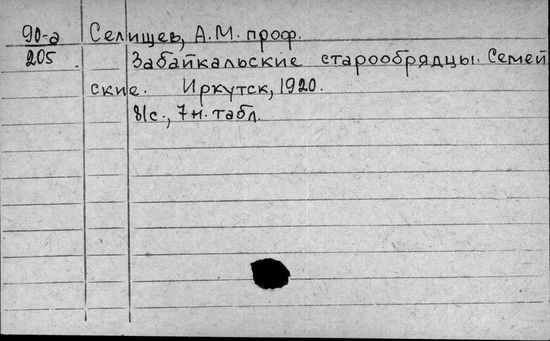 90-а Селищев, А.М. проф.
205 Забайкальские старообрядцы. Семей
ские. Иркутск, 1920.
81с., 7н. табл.